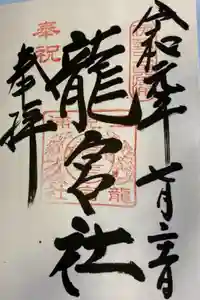 令和元年七月二十日
奉祝
龍宮社
奉拝